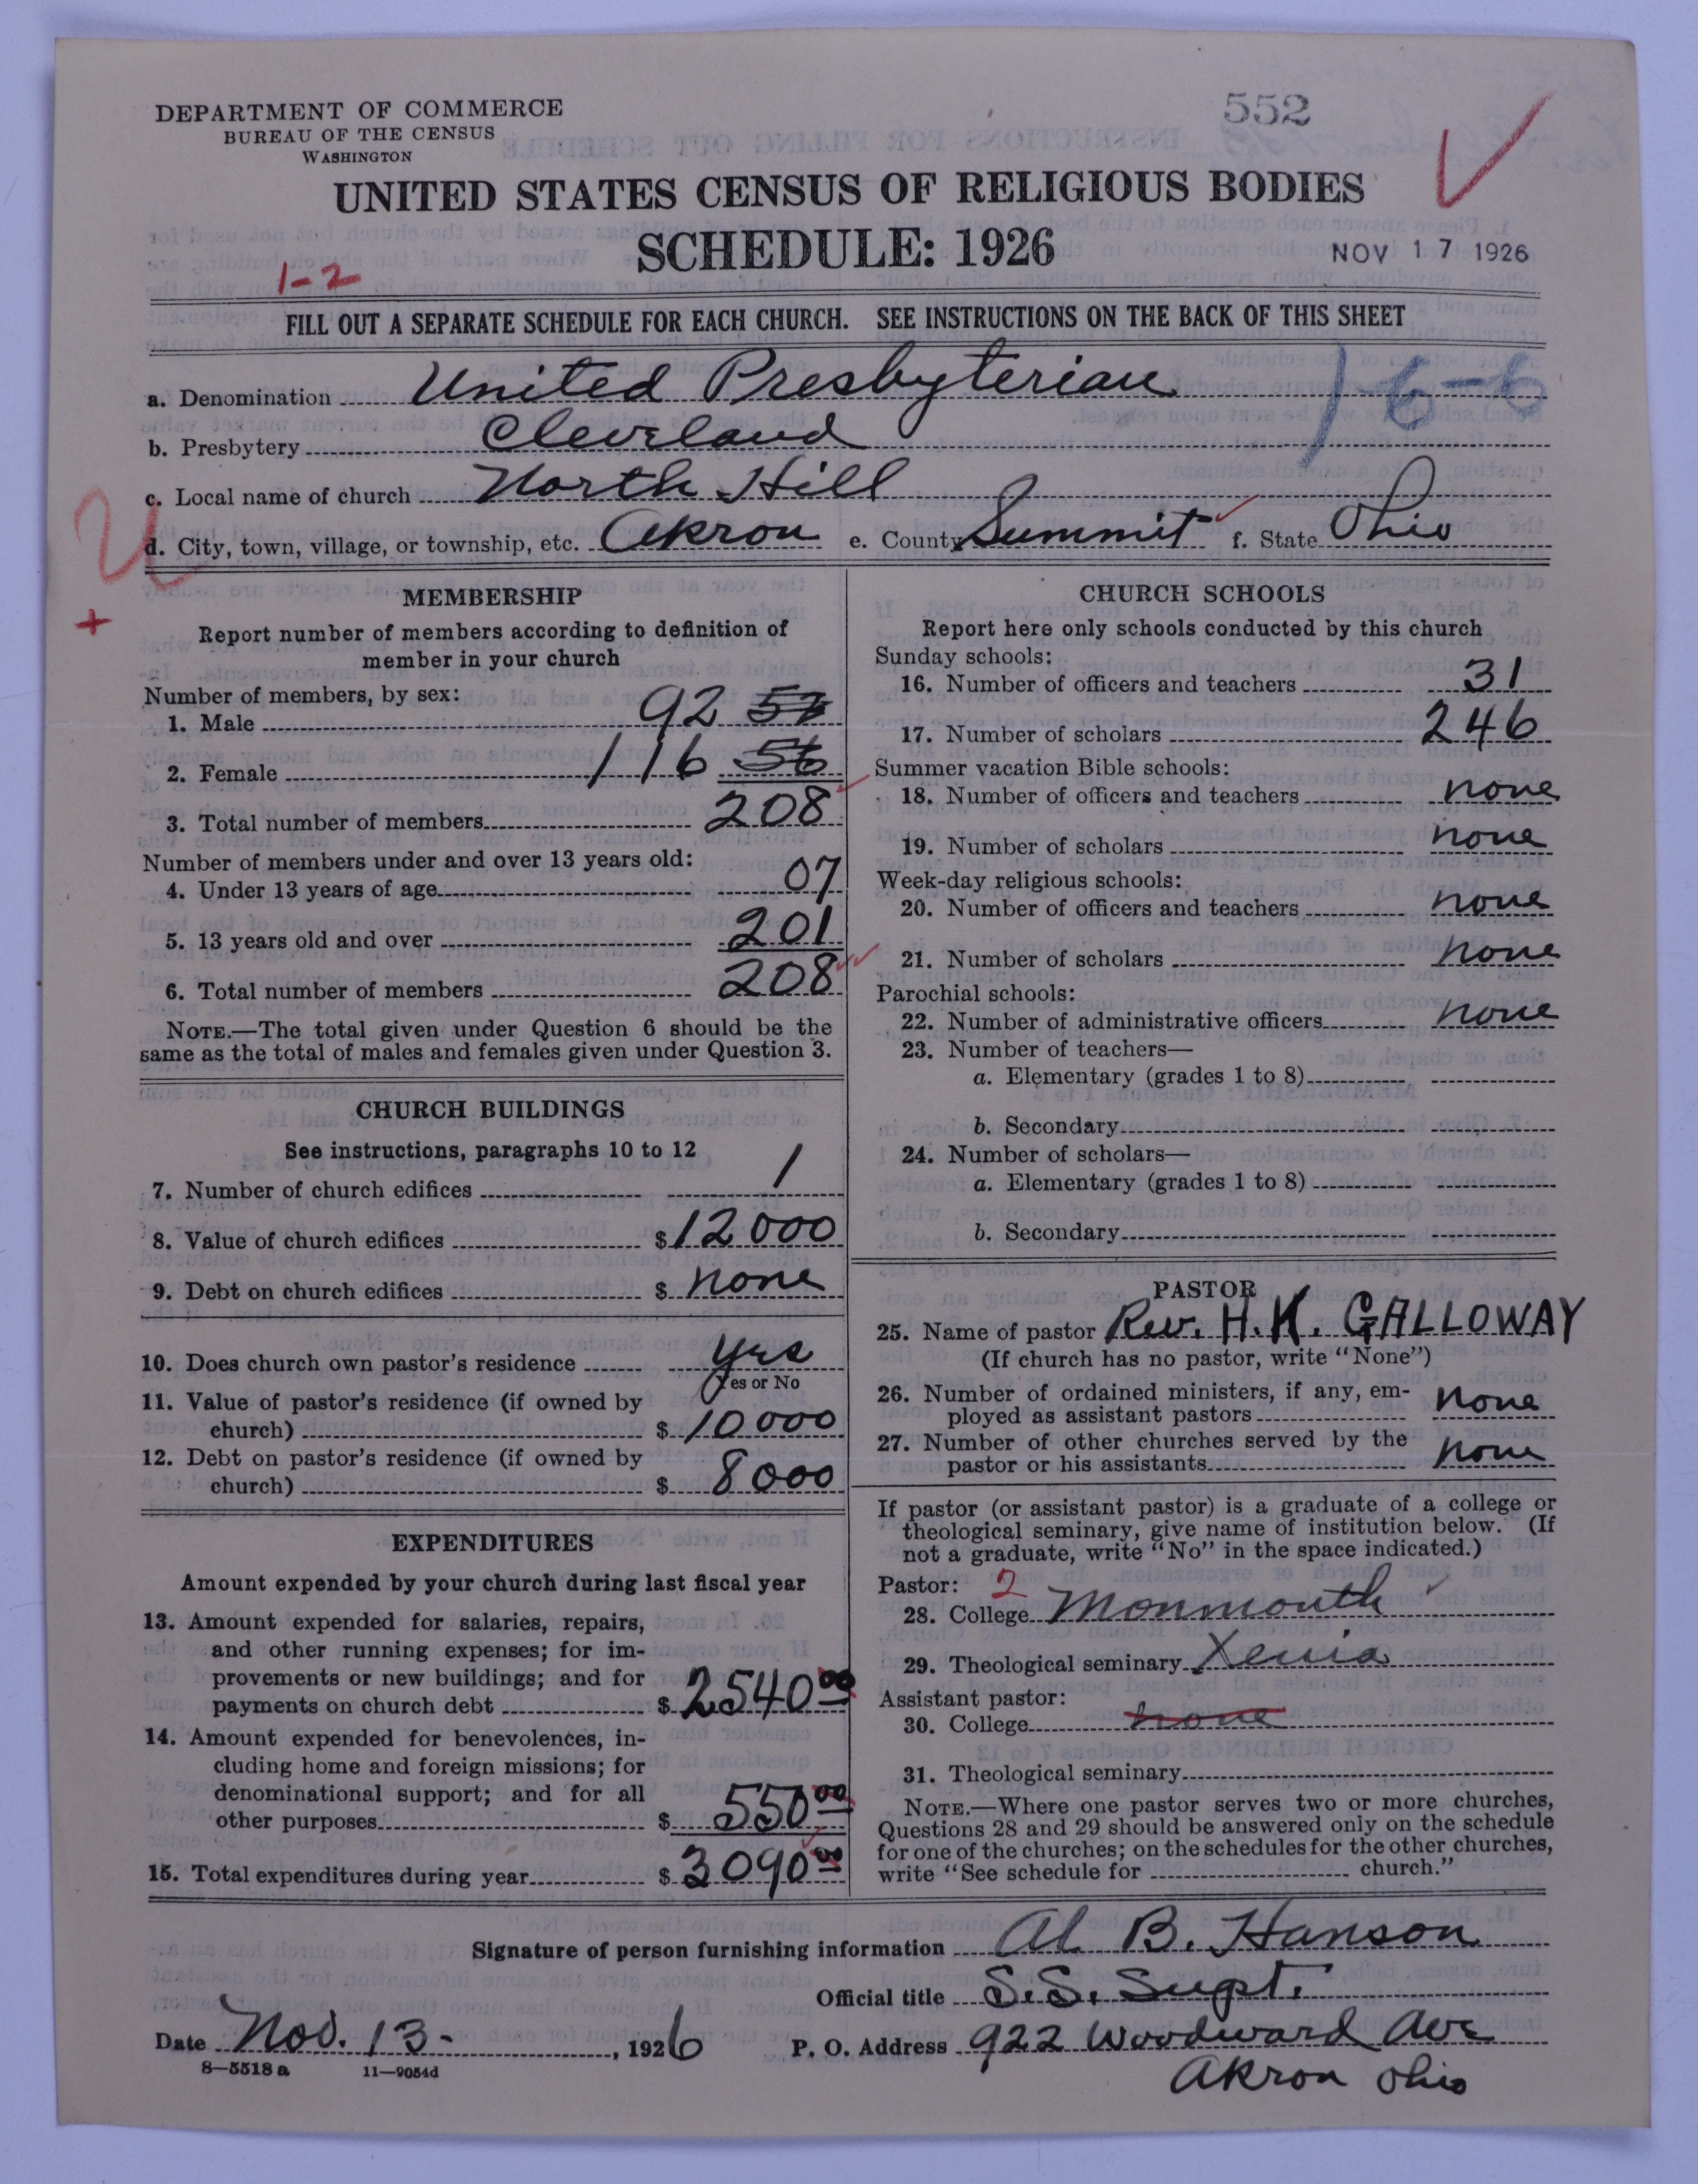 552
DEPARTMENT OF COMMERCE
BUREAU OF THE CENSUS
WASHINGTON
UNITED STATES CENSUS OF RELIGIOUS BODIES
SCHEDULE: 1926
NOV 17 1926
1-2
FILL OUT A SEPARATE SCHEDULE FOR EACH CHURCH. SEE INSTRUCTIONS ON THE BACK OF THIS SHEET
a. Denomination United Presbyterian
1-6-6
b. Presbytery Cleveland
c. Local name of church North Hill
d. City, town, village, or township, etc. Akron e. County Summit f. State Ohio
MEMBERSHIP
Report number of members according to definition of
member in your church
Number of members, by sex:
1. Male 92
2. Female 116 56
3. Total number of members 208
Number of members under and over 13 years old:
4. Under 13 years of age 07
5. 13 years old and over 201
6. Total number of members 208
NOTE.—The total given under Question 6 should be the
same as the total of males and females given under Question 3.
CHURCH BUILDINGS
See instructions, paragraphs 10 to 12
7. Number of church edifices 1
8. Value of church edifices $12000
9. Debt on church edifices $ none
10. Does church own pastor's residence yes
Yes or No
11. Value of pastor's residence (if owned by
church) $10000
12. Debt on pastor's residence (if owned by
church) $ 8000
EXPENDITURES
Amount expended by your church during last fiscal year
13. Amount expended for salaries, repairs,
and other running expenses; for im-
provements or new buildings; and for
payments on church debt $2540 00
14. Amount expended for benevolences, in-
cluding home and foreign missions; for
denominational support; and for all
other purposes $ 550 00
15. Total expenditures during year $3090 00
CHURCH SCHOOLS
Report here only schools conducted by this church
Sunday schools:
16. Number of officers and teachers 31
17. Number of scholars 246
Summer vacation Bible schools:
18. Number of officers and teachers none
19. Number of scholars none
Week-day religious schools:
20. Number of officers and teachers none
21. Number of scholars none
Parochial schools:
22. Number of administrative officers none
23. Number of teachers—
a. Elementary (grades 1 to 8)
b. Secondary
24. Number of scholars—
a. Elementary (grades 1 to 8)
b. Secondary
PASTOR
25. Name of pastor Rev. H.K. GALLOWAY
(If church has no pastor, write "None")
26. Number of ordained ministers, if any, em-
ployed as assistant pastors none
27. Number of other churches served by the
pastor or his assistants none
If pastor (or assistant pastor) is a graduate of a college or
theological seminary, give name of institution below. (If
not a graduate, write "No" in the space indicated.)
Pastor: 2
28. College Monmouth
29. Theological seminary Xenia
Assistant pastor:
30. College none
31. Theological seminary
NOTE.—Where one pastor serves two or more churches,
Questions 28 and 29 should be answered only on the schedule
for one of the churches; on the schedules for the other churches,
write "See schedule for church."
Signature of person furnishing information Al B. Hanson
Official title S.S. Supt.
Date Nov. 13- , 1926 P. O. Address 922 Woodward Ave
Akron Ohio
8—5518 a 11—9054d